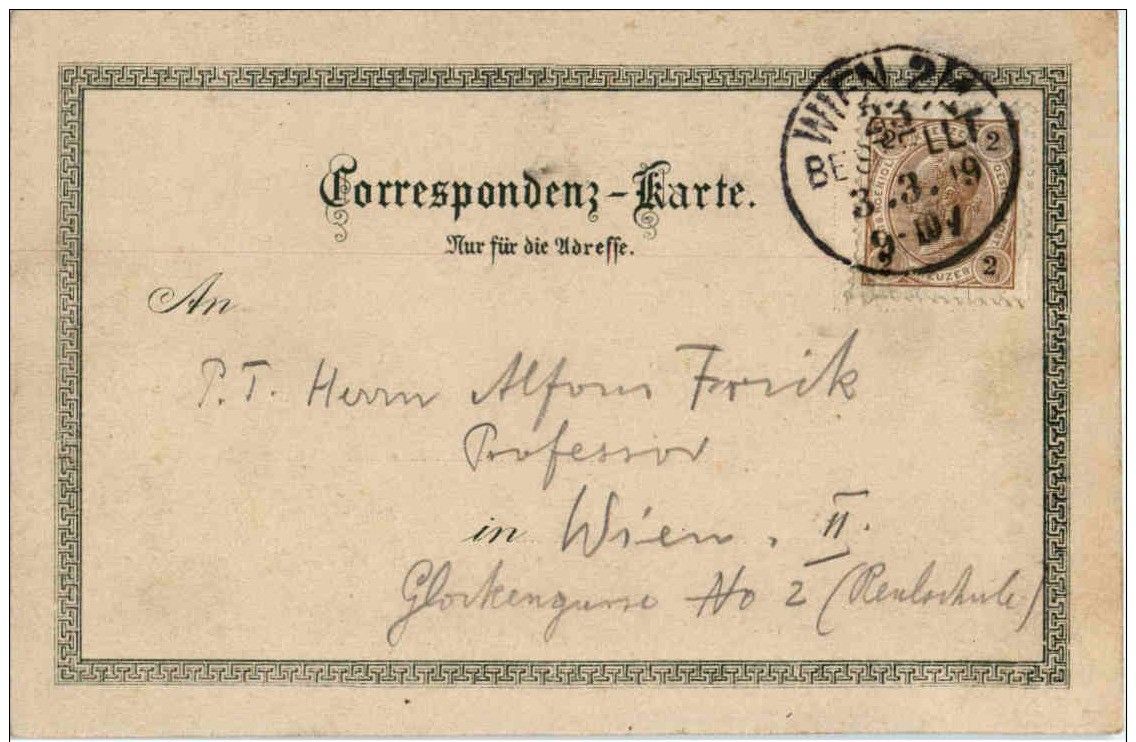 WIEN 2/1
BESTELLT
3.3.99
9-10V
2 2
2
KREUZER
Correspondenz-Karte.
Nur für die Adresse.
An
P.T. Herrn Alfons
Professor
in Wien, II.
Glockengasse No 2 (Realschule)